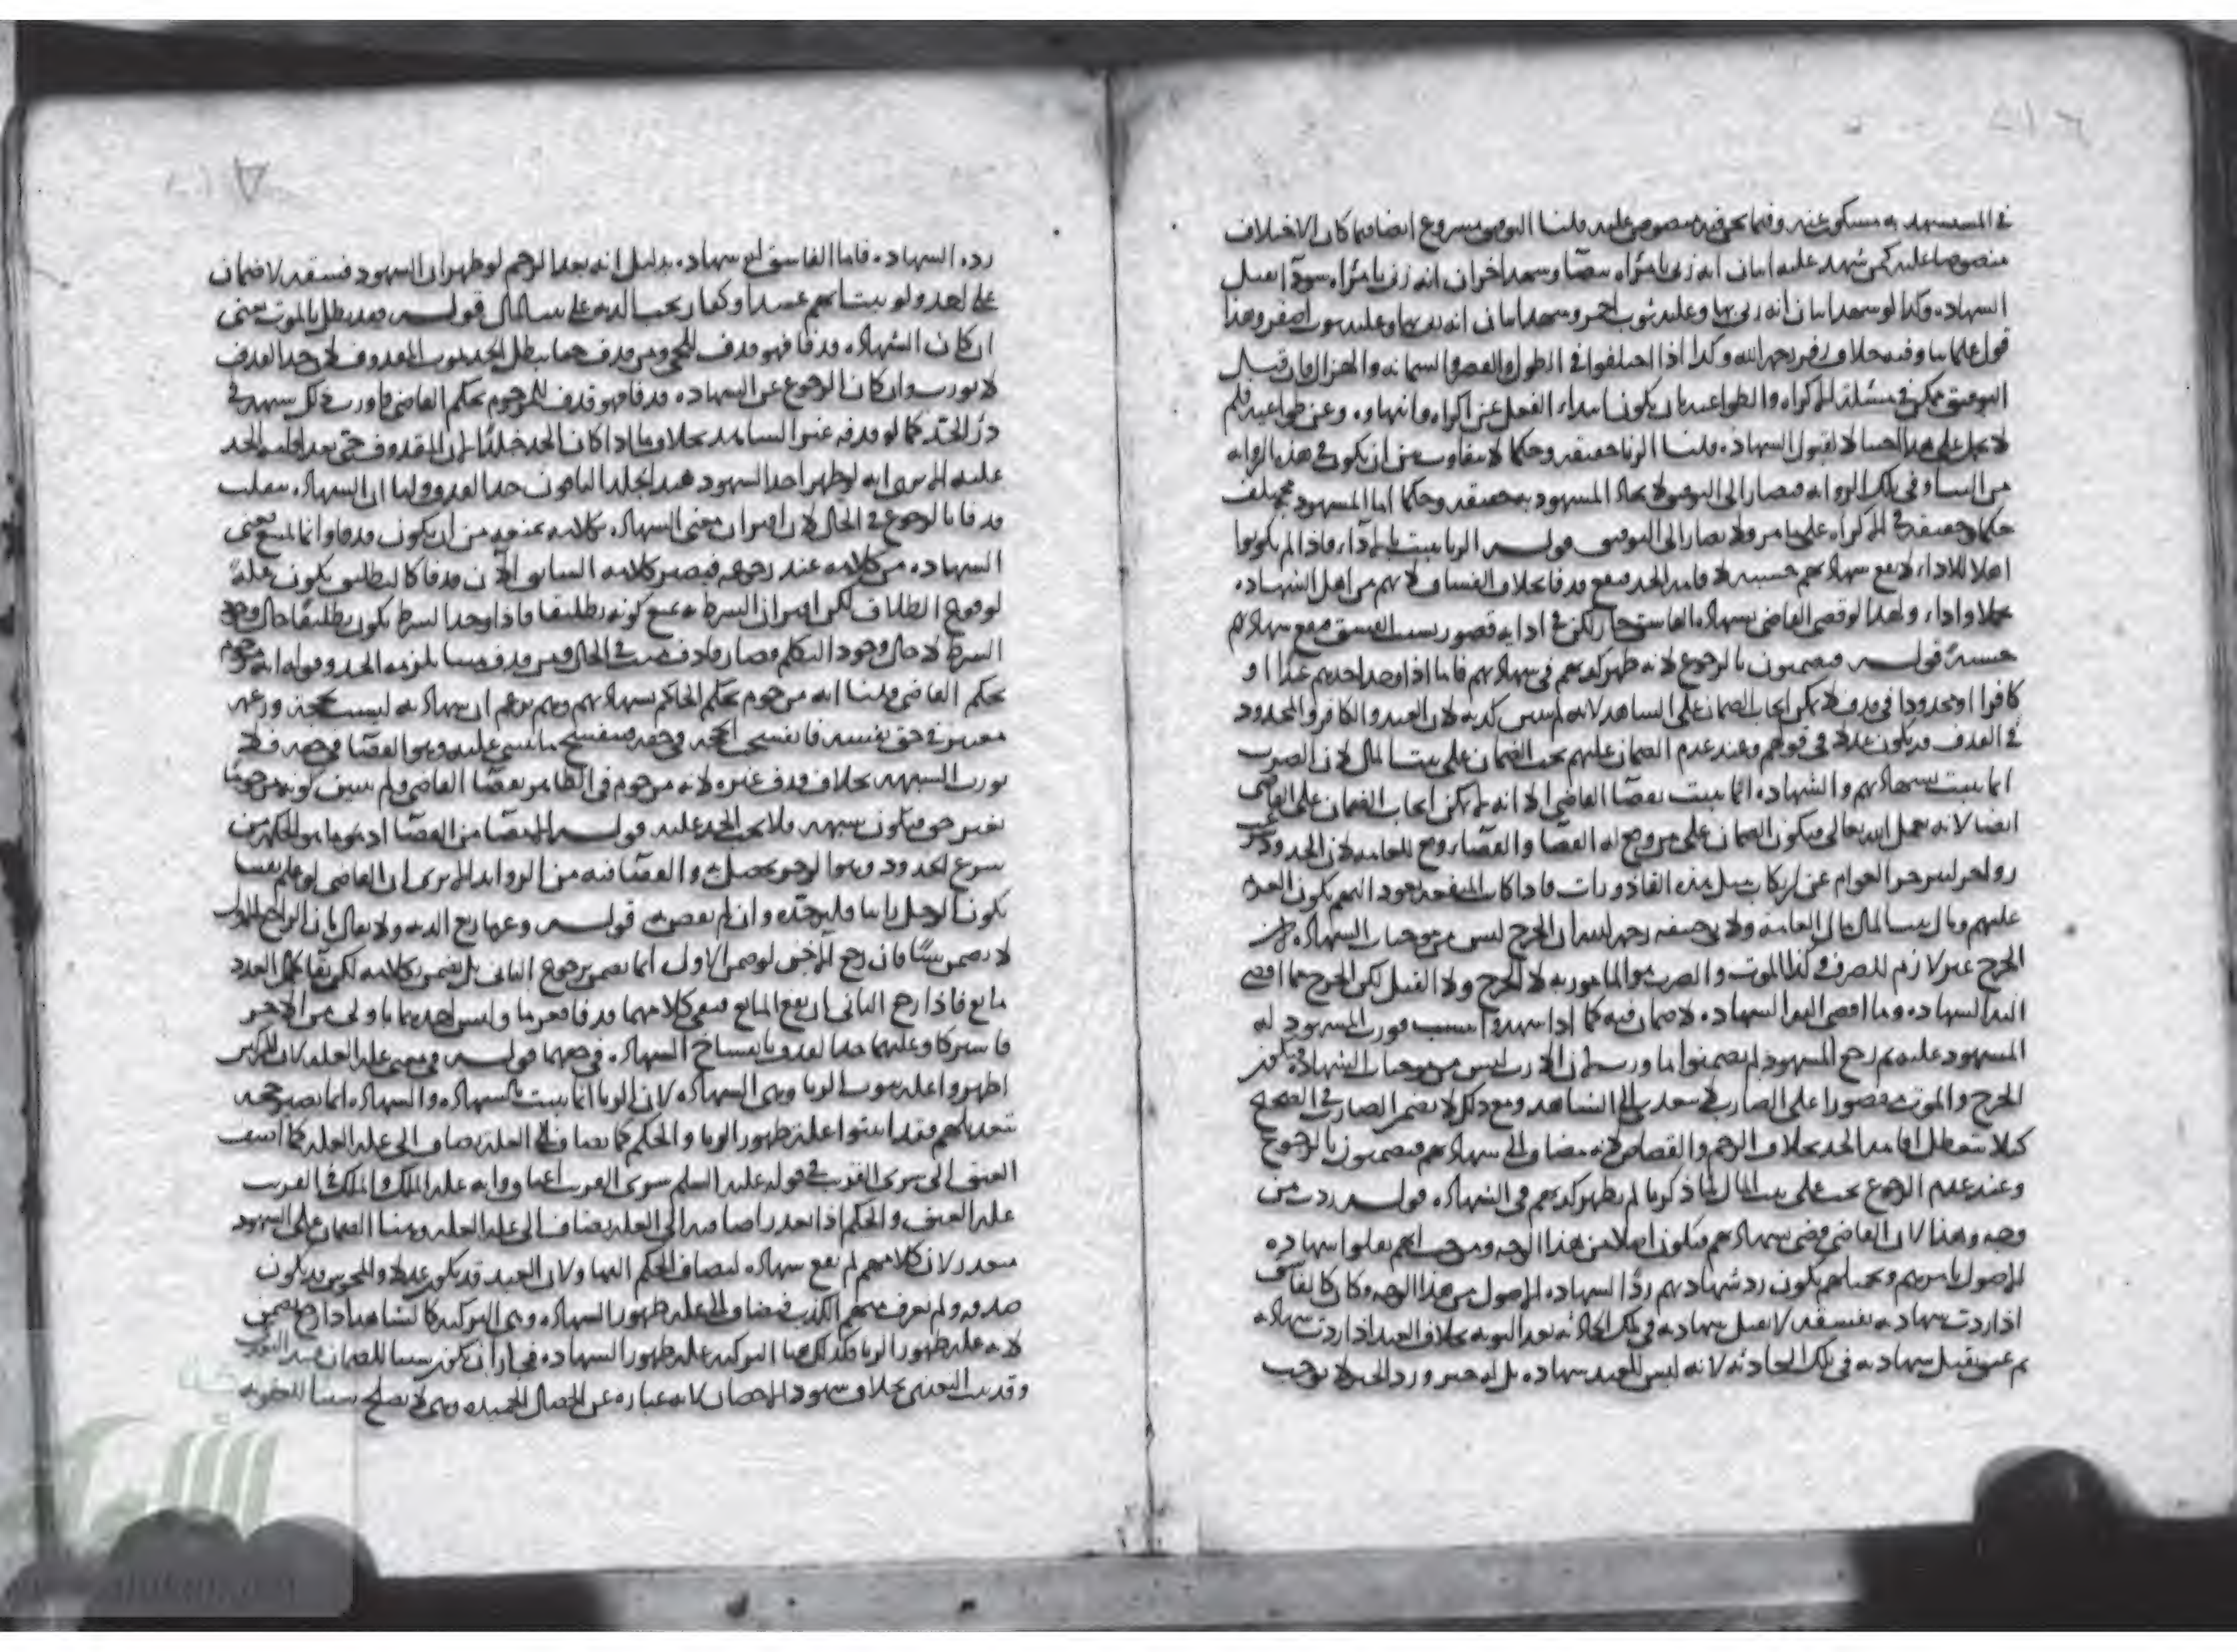 في المستشهد به مسكوت عنه وفيما نحن فيه منصوص عليه قلنا التوفيق مشروع ايضا فيما كان الاختلاف
منصوصا عليه كمن شهد عليه اثنان انه زنى بامراة بيضا وشهد اخران انه زنى بامراة سودآ تقبل
الشهادة وكذا لو شهد اثنان انه زنى بها وعليه ثوب احمر وشهد اثنان انه زنى بها وعليه ثوب اصفر وهذا
قول علمائنا وفيه خلاف زفر رحمه الله وكذا اذا اختلفوا في الطول والقصر والسمانة والهزال فان قيل
التوفيق ممكن في مسئلة الاكراه والطواعية بان يكون ابتداء الفعل عن اكراه وانتهاوه وعن طواعية فلم
لا يحمل على هذا احتيالا لقبول الشهادة قلنا الزنا حقيقة وحكما لا يتفاوت بين ان يكون في هذه الزواية
من البيت او في تلك الزواية فيصار الى التوفيق لاتحاد المشهود به حقيقة وحكما اما المشهود به مختلف
حكما وحقيقة في الاكراه على ما مر ولا يصار الى التوفيق قوله الزنا يثبت بالادآء فاذا لم يكونوا
اهلا للاداء لا تقع شهادتهم حسبة لاقامة الحد فيقع قذفا بخلاف الفساق لانهم من اهل الشهادة
تحملا واداء ولهذا لو قضى القاضي بشهادة الفاسق جاز لكن في ادايه قصور بسبب الفسق فيقع شهادتهم
حسبة قوله فيضمنون بالرجوع لانه ظهر كذبهم في شهادتهم فاما اذا وجد احدهم عبدا او
كافرا او محدودا في قذف لا يمكن ايجاب الضمان على الشاهد لانه لم يتبين كذبه لان العبد والكافر والمحدود
في القذف قد يكون عدلا في قولهم وعند عدم الضمان عليهم يجب الضمان على بيت المال لان الضرب
انما يثبت بشهادتهم والشهادة انما يثبت بقضا القاضي الا انه لم يمكن ايجاب الضمان على القاضي
ايضا لانه عمل لله تعالى فيكون الضمان على من وقع له القضا والقضا وقع للعامة لان الحدود
زواجر لينزجر العوام عن ارتكاب مثل هذه القاذورات فاذا كان المنفعة تعود اليهم يكون الغرم
عليهم ومال بيت المال مال العامة ولابي حنيفة رحمه الله ان الجرح ليس من موجبات الشهادة
الجرح غير لازم للضرب وكذا الموت والضرب هو المامور به لا الجرح ولا القتل لكن الجرح مما افضى
اليه الشهادة وما افضى اليه الشهادة لا ضمان فيه كما اذا شهدوا بنسب فورث المشهود له
المشهود عليه ثم رجع الشهود لم يضمنوا ما ورث لان الارث ليس من موجبات الشهادة فيكون
الجرح والموت مقصورا على الضارب لا يتعدى الى الشاهد ومع ذلك لا يضمن الضارب في الصحيح
كيلا يتعطل اقامة الحد بخلاف الرجم والقصاص لانه مضاف الى شهادتهم فيضمنون بالرجوع
وعند عدم الرجوع يجب على بيت المال لما ذكرنا لم يظهر كذبهم في الشهادة قوله ردت من
وجه وهذا لان القاضي قضى بشهادتهم فيكون اصلا من هذا الوجه ومن حيث انهم نقلوا شهادة
الاصول بامرهم وتحميلهم يكون رد شهادتهم ردا لشهادة الاصول من هذا الوجه وكان كالفاسق
اذا ردت شهادته بفسقه لا تقبل شهادته في تلك الحادثة بعد التوبة بخلاف العبد اذا ردت شهادته
ثم عتق يقبل شهادته في تلك الحادثة لانه ليس للعبد شهادة بل له خبر ورد الخبر لا يوجب
رده الشهادة فاما الفاسق له شهادة بدليل انه بعد الرجم لو ظهر ان الشهود فسقة لا ضمان
على احد ولو تبين انهم عبيد او كفار يجب الدية على بيت المال قوله فقد بطل بالموت يعني
ان كان الشهادة قذفا فهو قذف للحي ومن قذف حيا يبطل الحد بموت المقذوف لان حد القذف
لا يورث وان كان الرجوع عن الشهادة قذفا فهو قذف للمرجوم بحكم القاضي فاورث ذلك شبهة في
درء الحد كما لو قذفه غير الشاهد بخلاف ما اذا كان الحد جلدا لان المقذوف حي بعد اقامة الحد
عليه الا يرى انه لو ظهر احد الشهود عبدا يجلد الباقون حد القذف ولنا ان الشهادة تنقلب
قذفا بالرجوع في الحال لان اقتران معنى الشهادة بكلامه يمنعه من ان يكون قذفا وانما ينتسخ معنى
الشهادة من كلامه عند رجوعه فيصير كلامه السابق الآن قذفا كالتطليق يكون علة
لوقوع الطلاق لكن اقتران الشرط به يمنع كونه تطليقا فاذا وجد الشرط يكون تطليقا حال وجود
الشرط لا حال وجود التكلم فصار قاذف ميت في الحال ومن قذف ميتا يلزمه الحد وقوله انه مرجوم
بحكم القاضي قلنا انه مرجوم بحكم الحاكم بشهادتهم وهم يزعم ان شهادته ليست بحجة وزعمه
معتبر في حق نفسه فانفسخ الحجة في حقه فينفسخ ما يبتني عليه وهو القضا في حقه فلا
يورث الشبهة بخلاف قذف غيره لانه مرجوم في الظاهر بقضا القاضي ولم يتبين كونه مرجوما
بغير حق فيكون شبهة فلا يجب الحد عليه قوله الامضا من القضا اذ هو ما هو الحكم من
شرع الحدود وهو الزجر يحصل به والقضا فيه من الزوايد الا يرى ان القاضي لو علم يقينا
يكون الرجل زانيا فليرجمه وان لم يقض به قوله وغرما ربع الدية ولا يقال بان الراجع الاول
لا يضمن شيئا فان رجع الآخر لو ضمن الاول انما يضمن برجوع الثاني بل يضمن بكلامه لكن بقا كمال العدد
مانع فاذا رجع الثاني ارتفع المانع فبقي كلامهما قذفا فغرما وليس احدهما باولى من الاخر
فاشتركا وعليهما حد القذف بانفساخ الشهادة في حقهما قوله في معنى علة العلة لان المزكين
اظهروا علة ثبوت الزنا وهي الشهادة لان الزنا انما يثبت بالشهادة والشهادة انما يصير حجة
بتعديلهم فقد اثبتوا علة ظهور الزنا والحكم كما يضاف الى العلة يضاف الى علة العلة كما اضيف
العتق الى شرى القريب في قوله عليه السلم شرى القريب اعتاق وانه علة الملك والملك في القريب
علة العتق والحكم اذا تعذر اضافته الى العلة يضاف الى علة العلة وهنا الضمان على الشهود
متعذر لان كلامهم لم يقع شهادة ليضاف الحكم اليها ولان العبد قد يكون عدلا والمجوس قد يكون
صدوقا ولم نعرف منهم الكذب فيضاف الى علة ظهور الشهادة وهي التزكية كالشاهد اذا رجع يضمن
لانه علة ظهور الزنا فكذلك هنا التزكية علة ظهور الشهادة فجاز ان يكون سببا للضمان
وقد بينا المعنى بخلاف شهود الاحصان لانه عبارة عن الخصال الحميدة وهي لا تصلح سببا للعقوبة